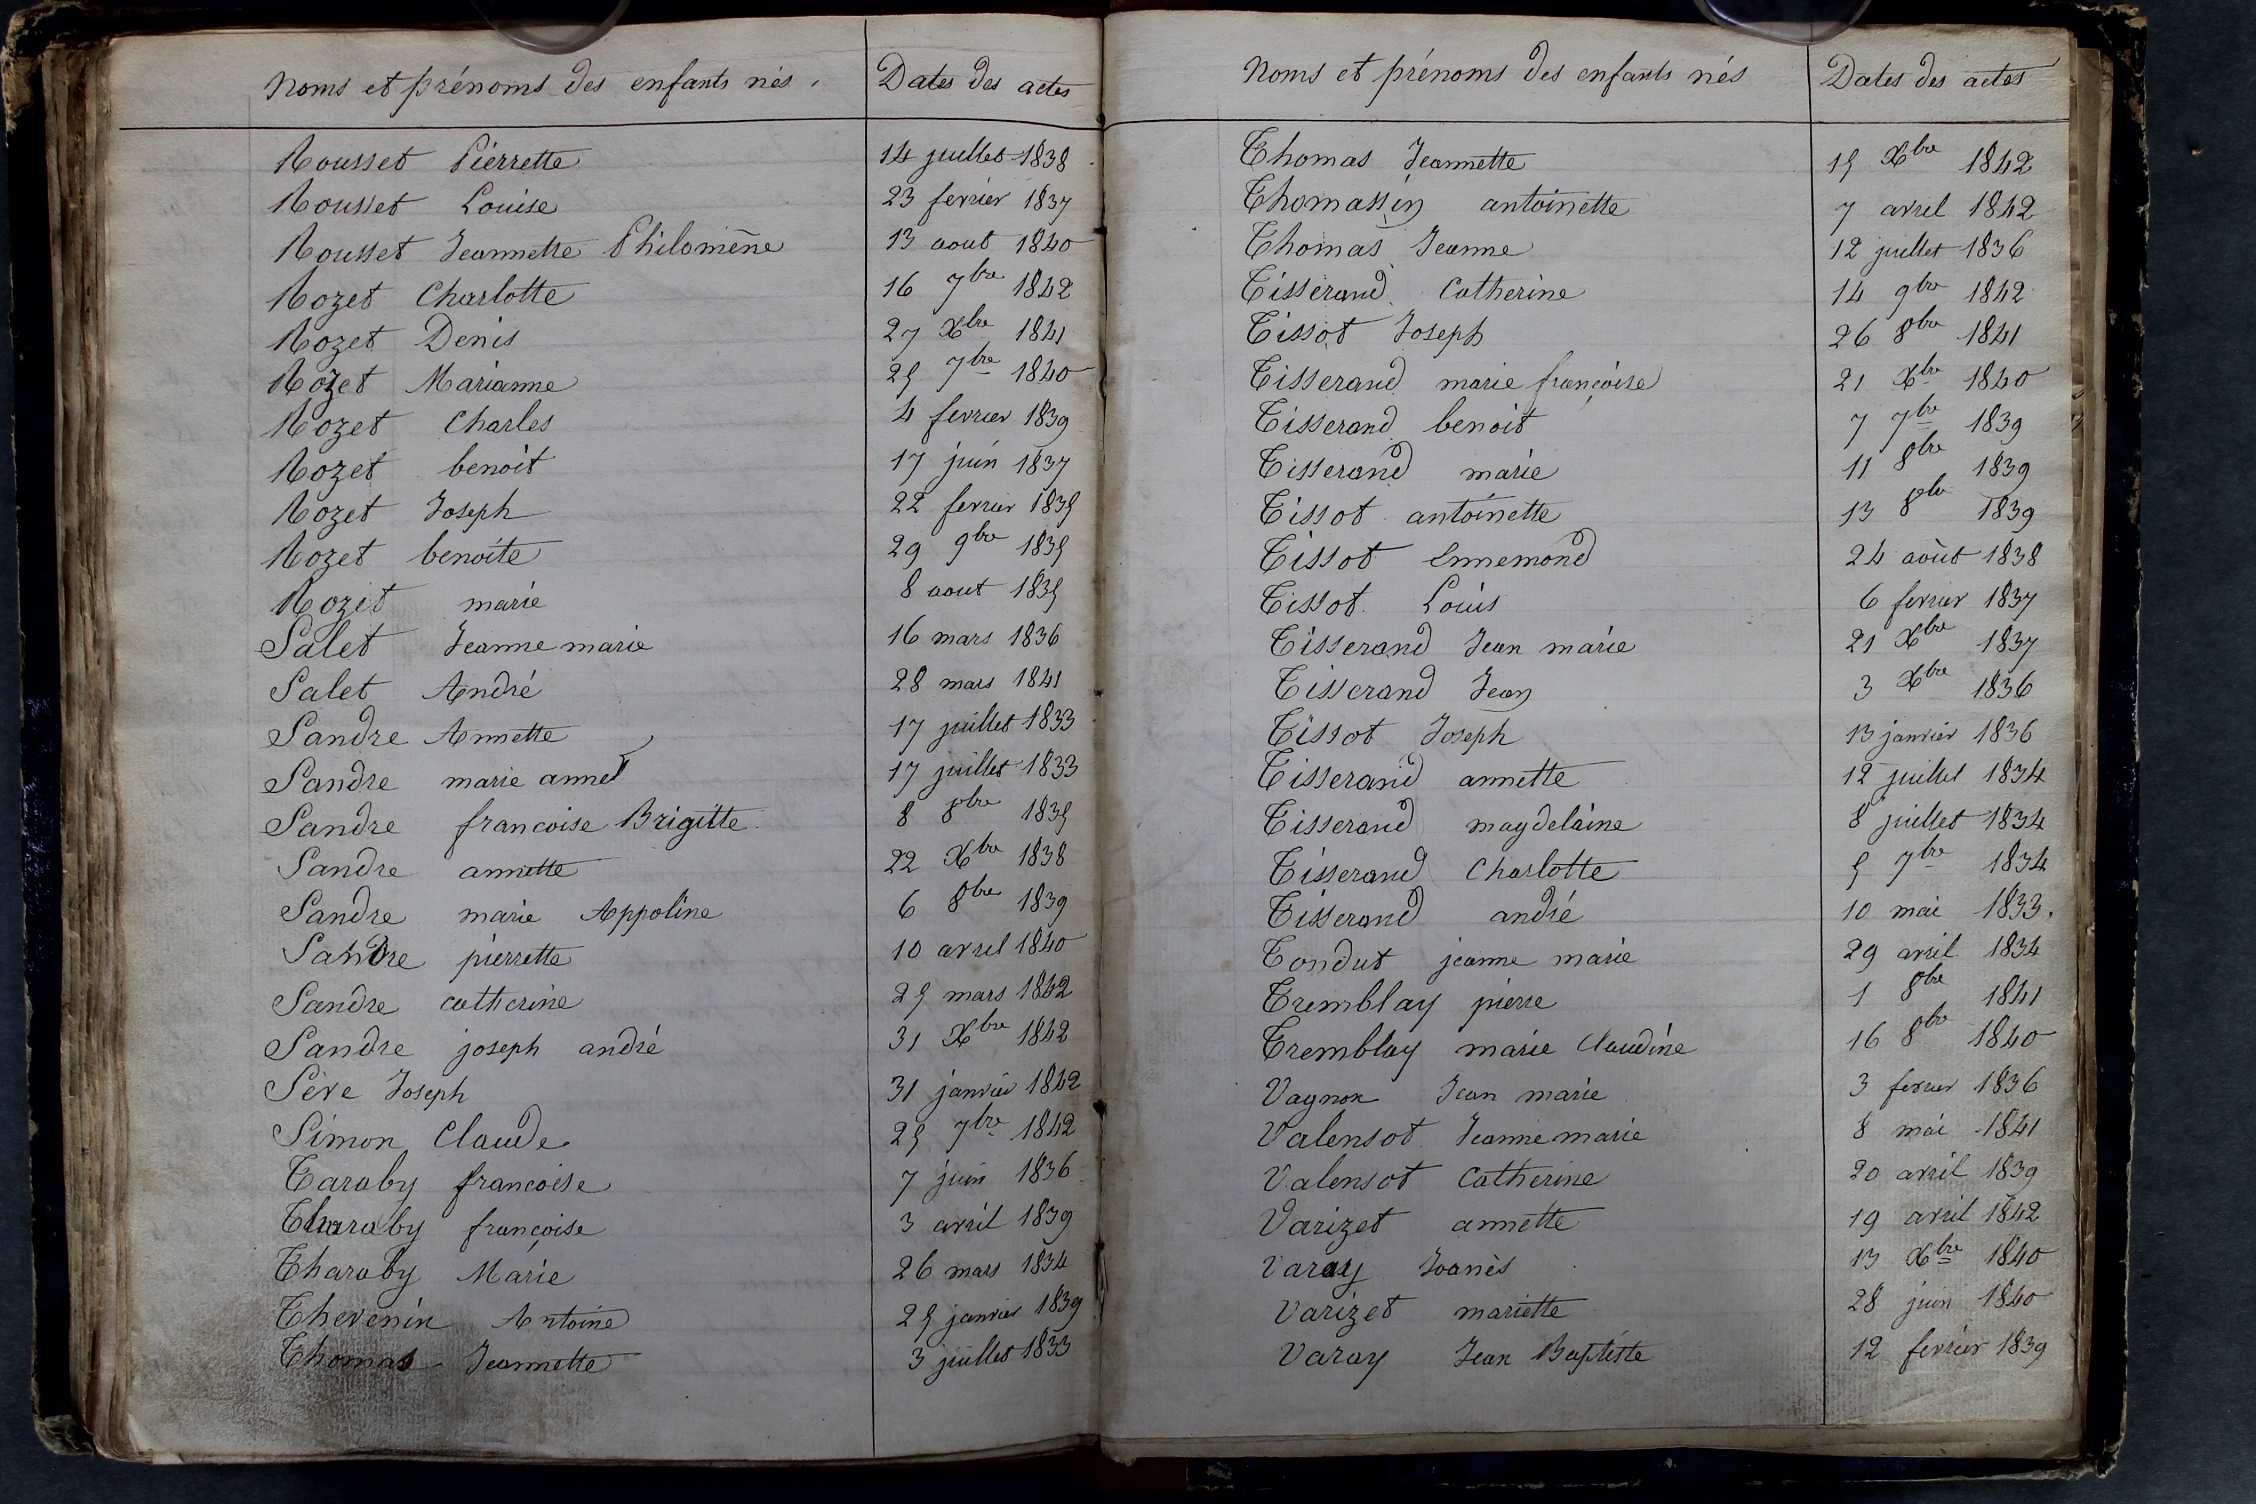 Noms et prénoms des enfants nés. Dates des actes
Rousset Pierrette 14 juillet 1838
Rousset Louise 23 fevrier 1837
Rousset Jeannette Philomène 13 aout 1840
Rozet Charlotte 16 7bre 1842
Rozet Denis 27 Xbre 1841
Rozet Marianne 25 7bre 1840
Rozet Charles 4 fevrier 1839
Rozet benoit 17 juin 1837
Rozet Joseph 22 fevrier 1835
Rozet benoite 29 9bre 1835
Rozet marie 8 aout 1835
Salet Jeanne marie 16 mars 1836
Salet André 28 mars 1841
Sandre Annette 17 juillet 1833
Sandre marie anne 17 juillet 1833
Sandre francoise Brigitte 8 8bre 1835
Sandre annette 22 Xbre 1838
Sandre marie Appoline 6 8bre 1839
Sandre pierrette 10 avril 1840
Sandre catherine 25 mars 1842
Sandre joseph andré 31 Xbre 1842
Sève Joseph 31 janvier 1842
Simon Claude 25 7bre 1842
Taraby francoise 7 juin 1836
Tharaby françoise 3 avril 1839
Tharaby Marie 26 mars 1834
Thevenin Antoine 25 janvier 1839
Thomas Jeannette 3 juillet 1833
Noms et prénoms des enfants nés Dates des actes
Thomas Jeannette 15 Xbre 1842
Thomassin antoinette 7 avril 1842
Thomas Jeanne 12 juillet 1836
Tisserand Catherine 14 9bre 1842
Tissot Joseph 26 8bre 1841
Tisserand marie françoise 21 Xbre 1840
Tisserand benoit 7 7bre 1839
Tisserand marie 11 8bre 1839
Tissot antoinette 13 8bre 1839
Tissot Ennemond 24 août 1838
Tissot Louis 6 fevrier 1837
Tisserand Jean marie 21 Xbre 1837
Tisserand Jean 3 Xbre 1836
Tissot Joseph 13 janvier 1836
Tisserand annette 12 juillet 1834
Tisserand magdelaine 8 juillet 1834
Tisserand Charlotte 5 7bre 1834
Tisserand andré 10 mai 1833.
Tondut jeanne marie 29 avril 1834
Tremblay pierre 1 8bre 1841
Tremblay marie Claudine 16 8bre 1840
Vagnon Jean marie 3 fevrier 1836
Valensot Jeanne marie 8 mai 1841
Valensot Catherine 20 avril 1839
Varizet annette 19 avril 1842
Varay Joanès 13 Xbre 1840
Varizet mariette 28 juin 1840
Varay Jean Baptiste 12 fevrier 1839